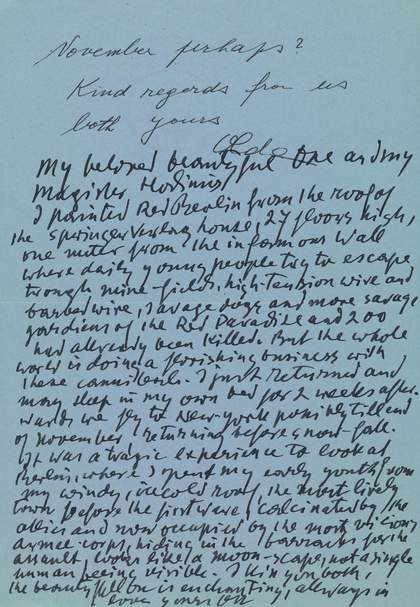 November perhaps?
Kind regards from us
both yours
Olda
My beloved beautyful One and my
Magister Hodinus
I painted Red Berlin from the roof of
the Springer Verlag house, 27 floors high,
one meter from the infamous Wall
where daily young people try to escape
trough mine-fields, high-tension wire and
barbed wire, savage dogs and more savage
gardiens of the Red Paradise and 200
had allready been killed. But the whole
world is doing a florishing business with
these cannibals. I just returned and
may sleep in my own bed for 2 weeks after-
wards we fly to New-York possibly till end
of november, returning before snow-fall.
It was a tragic experience to look at
Berlin, where I spent my early youth from
my windy, icecold roof, the most lively
town before the first war, calcinated by the
allies and now occupied by the most vicious
armee corps, hiding in the barracks for the
assault, looks like a moon-scape, not a single
human beeing visible. I kiss you both,
the beauty is enchanting, allways in
love yours OK